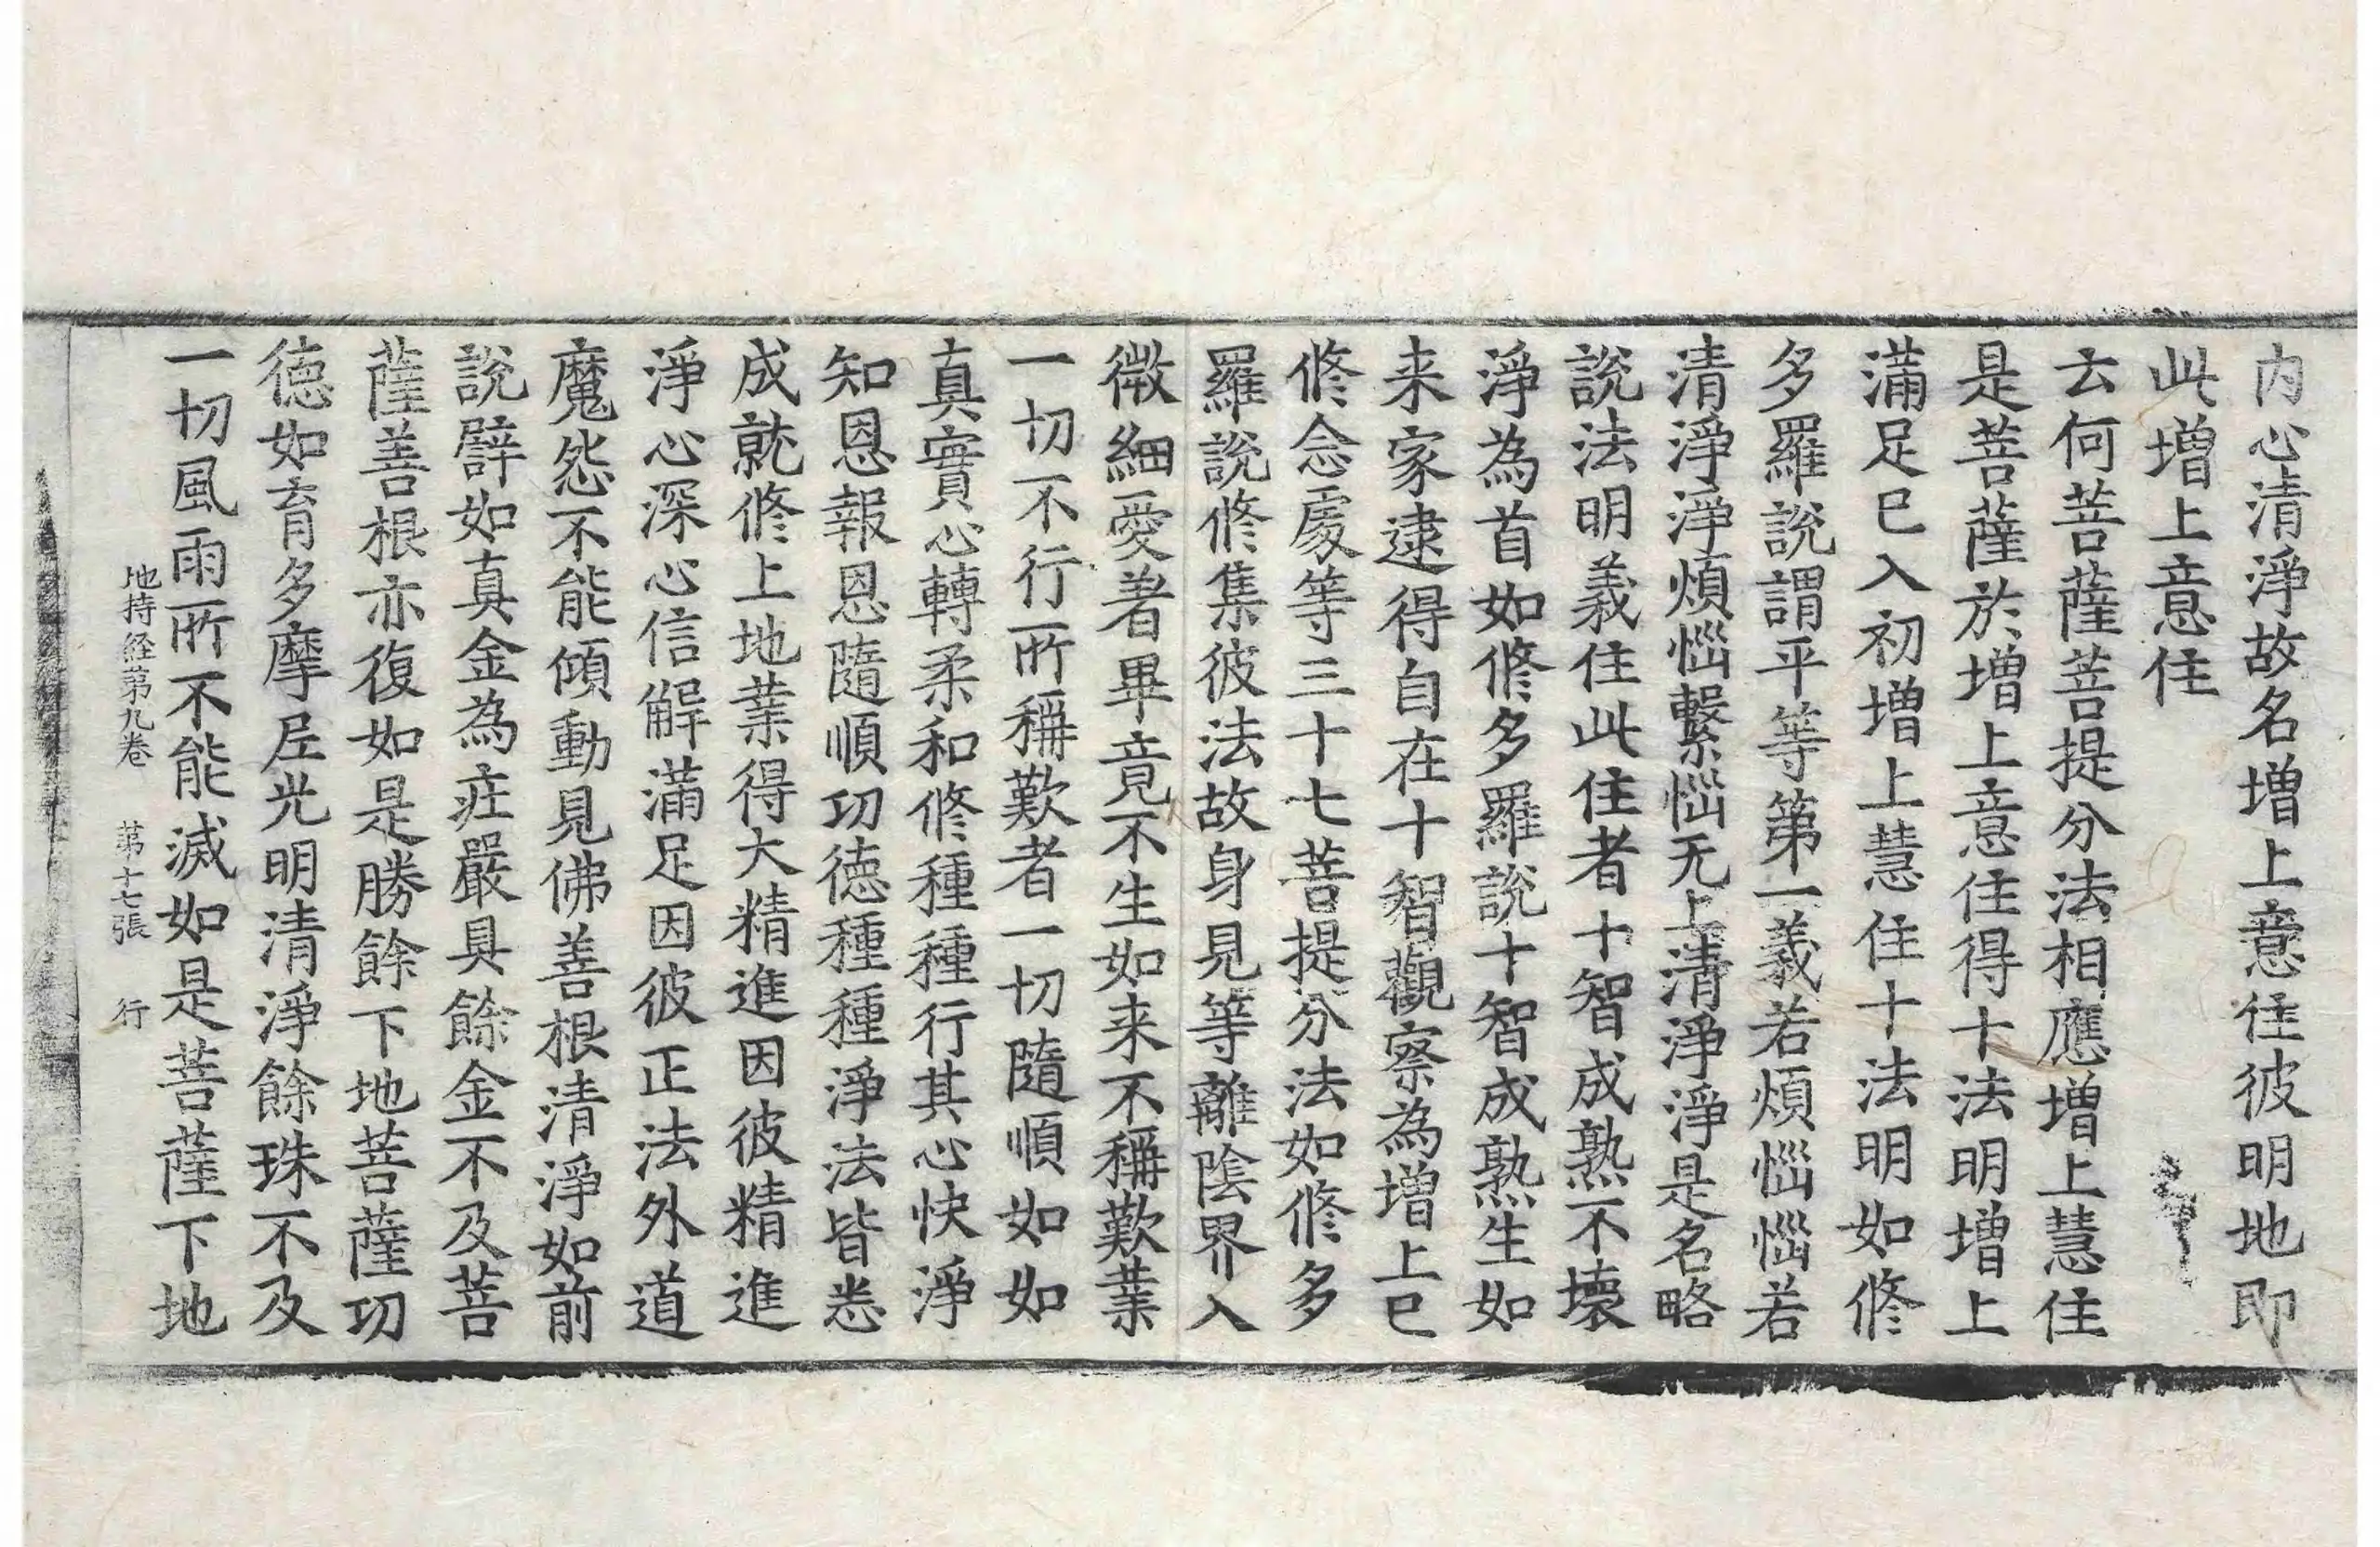 內心清淨故名增上意住彼明地即
此增上意住
云何菩薩菩提分法相應增上慧住
是菩薩於增上意住得十法明增上
滿足已入初增上慧住十法明如修
多羅說謂平等第一義若煩惱惱若
清淨淨煩惱繫惱无上清淨淨是名略
說法明義住此住者十智成熟不壞
淨為首如修多羅說十智成熟生如
来家逮得自在十智觀察為增上已
修念處等三十七菩提分法如修多
羅說修集彼法故身見等離陰界入
微細愛著畢竟不生如来不稱歎業
一切不行所稱歎者一切隨順如如
真實心轉柔和修種種行其心快淨
知恩報恩隨順功德種種淨法皆悉
成就修上地業得大精進因彼精進
淨心深心信解滿足因彼正法外道
魔怨不能傾動見佛善根清淨如前
說譬如真金為庄嚴具餘金不及菩
薩善根亦復如是勝餘下地菩薩功
德如育多摩尼光明清淨餘珠不及
一切風雨所不能滅如是菩薩下地
地持経第九卷 第十七張 行